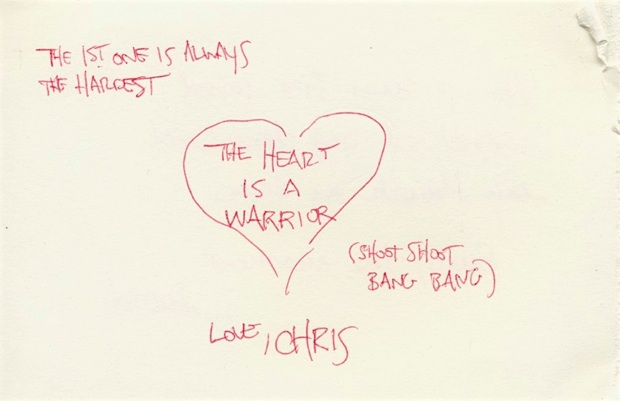 THE 1ST ONE IS ALWAYS
THE HARDEST
THE HEART
IS A
WARRIOR
(SHOOT SHOOT
BANG BANG)
LOVE, CHRIS